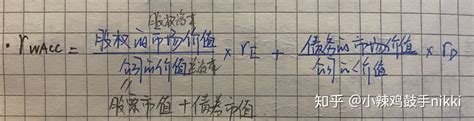 股权资本
· rWACC = 股权的市场价值 / 公司的价值 × rE + 债务的市场价值 / 公司的价值 × rD
总资本
股票市值 + 债券市值
知乎 @小辣鸡鼓手nikki